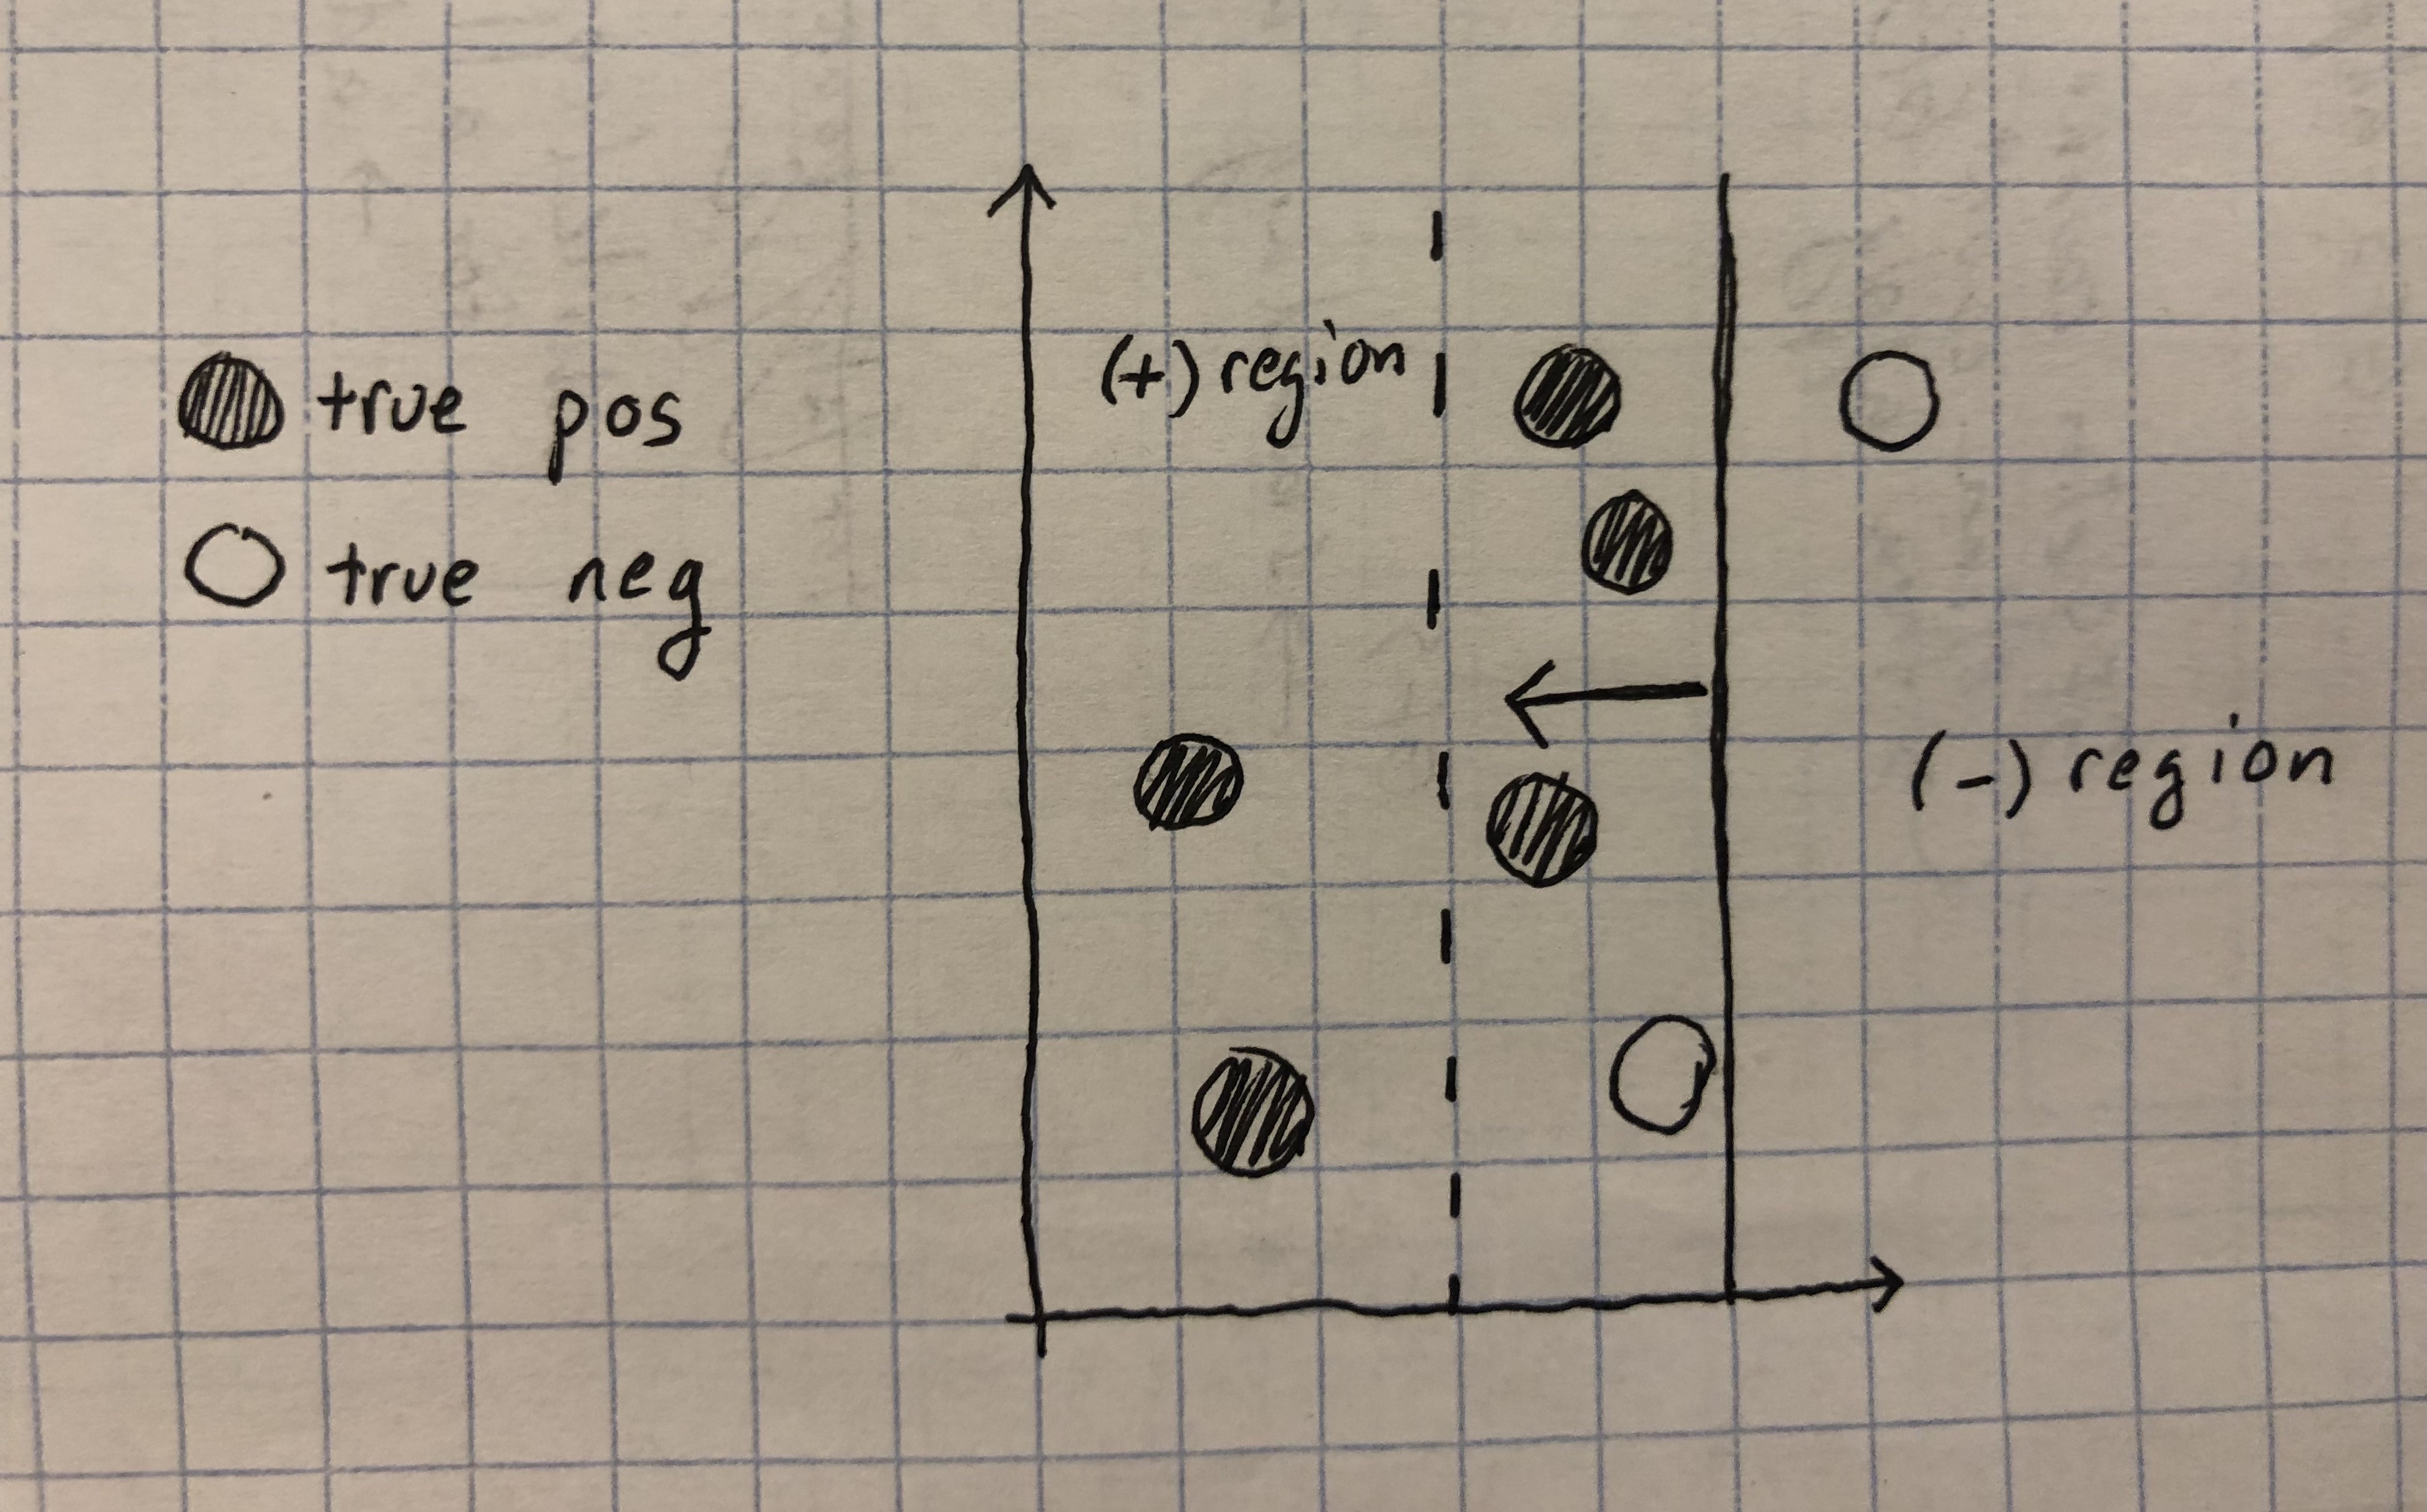 true pos
true neg
(+) region
(-) region